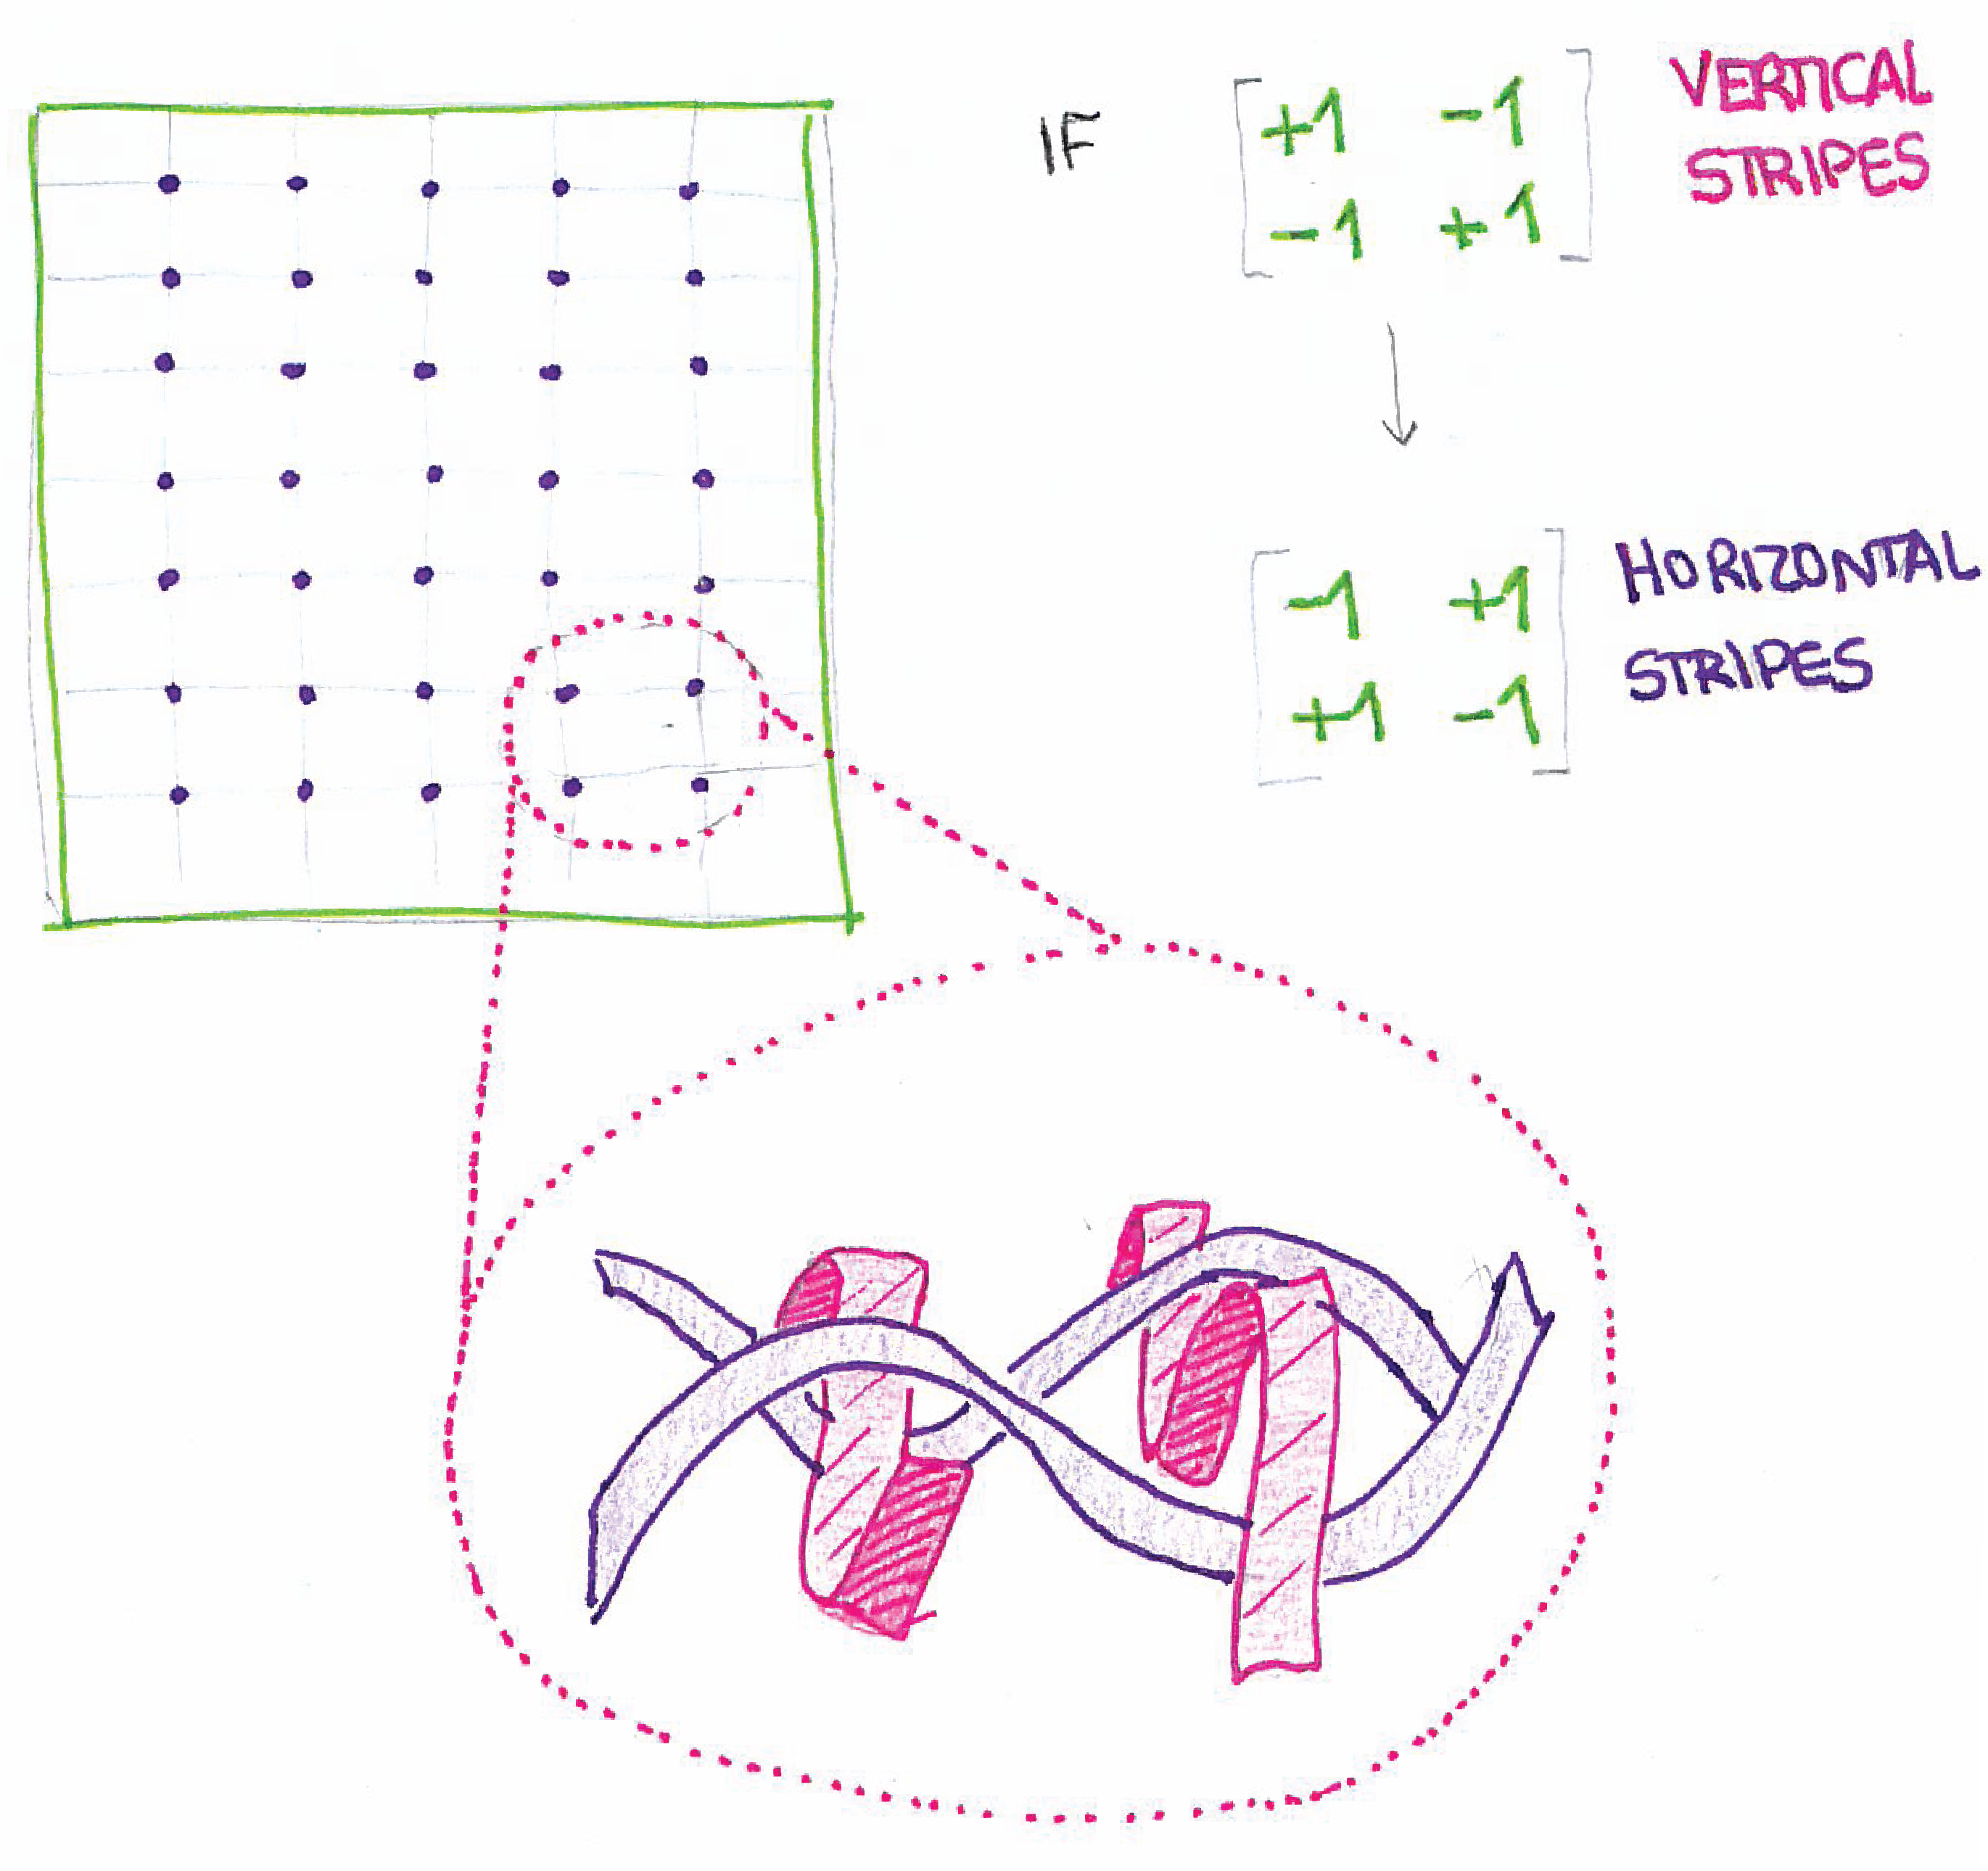 IF
+1 -1
-1 +1
VERTICAL
STRIPES
-1 +1
+1 -1
HORIZONTAL
STRIPES